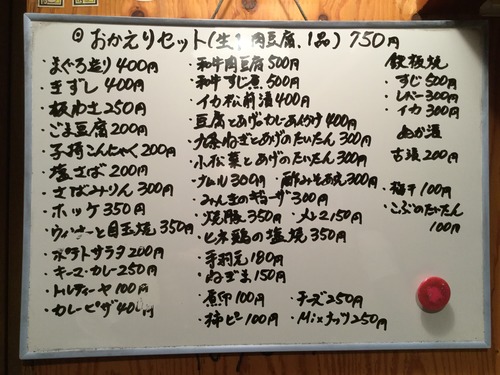 ◎ おかえりセット(生1、肉豆腐、1品) 750円
・まぐろ造り 400円
・きずし 400円
・板わさ 250円
・ごま豆腐 200円
・子持こんにゃく 200円
・塩さば 200円
・さばみりん 300円
・ホッケ 350円
・ウィンナーと目玉焼 350円
・ポテトサラダ 200円
・キーマ・カレー 250円
・トルティーヤ 100円
・カレーピザ 400円
・和牛肉豆腐 500円
・和牛すじ煮 500円
・イカ松前漬 400円
・豆腐とあげのカレーあんかけ 400円
・九条ねぎとあげのたいたん 300円
・小松菜とあげのたいたん 300円
・ナムル 300円 ・酢みそあえ 300円
・みんきのギョーザ 300円
・焼豚 350円 ・メンマ 150円
・ヒネ鶏の塩焼 350円
・手羽元 180円
・ねぎま 150円
・煮卵 100円 ・チーズ 250円
・柿ピー 100円 ・Mixナッツ 250円
鉄板焼
・すじ 500円
・レバー 300円
・イカ 300円
ぬか漬
・古漬 200円
・梅干 100円
・こぶのたいたん
100円